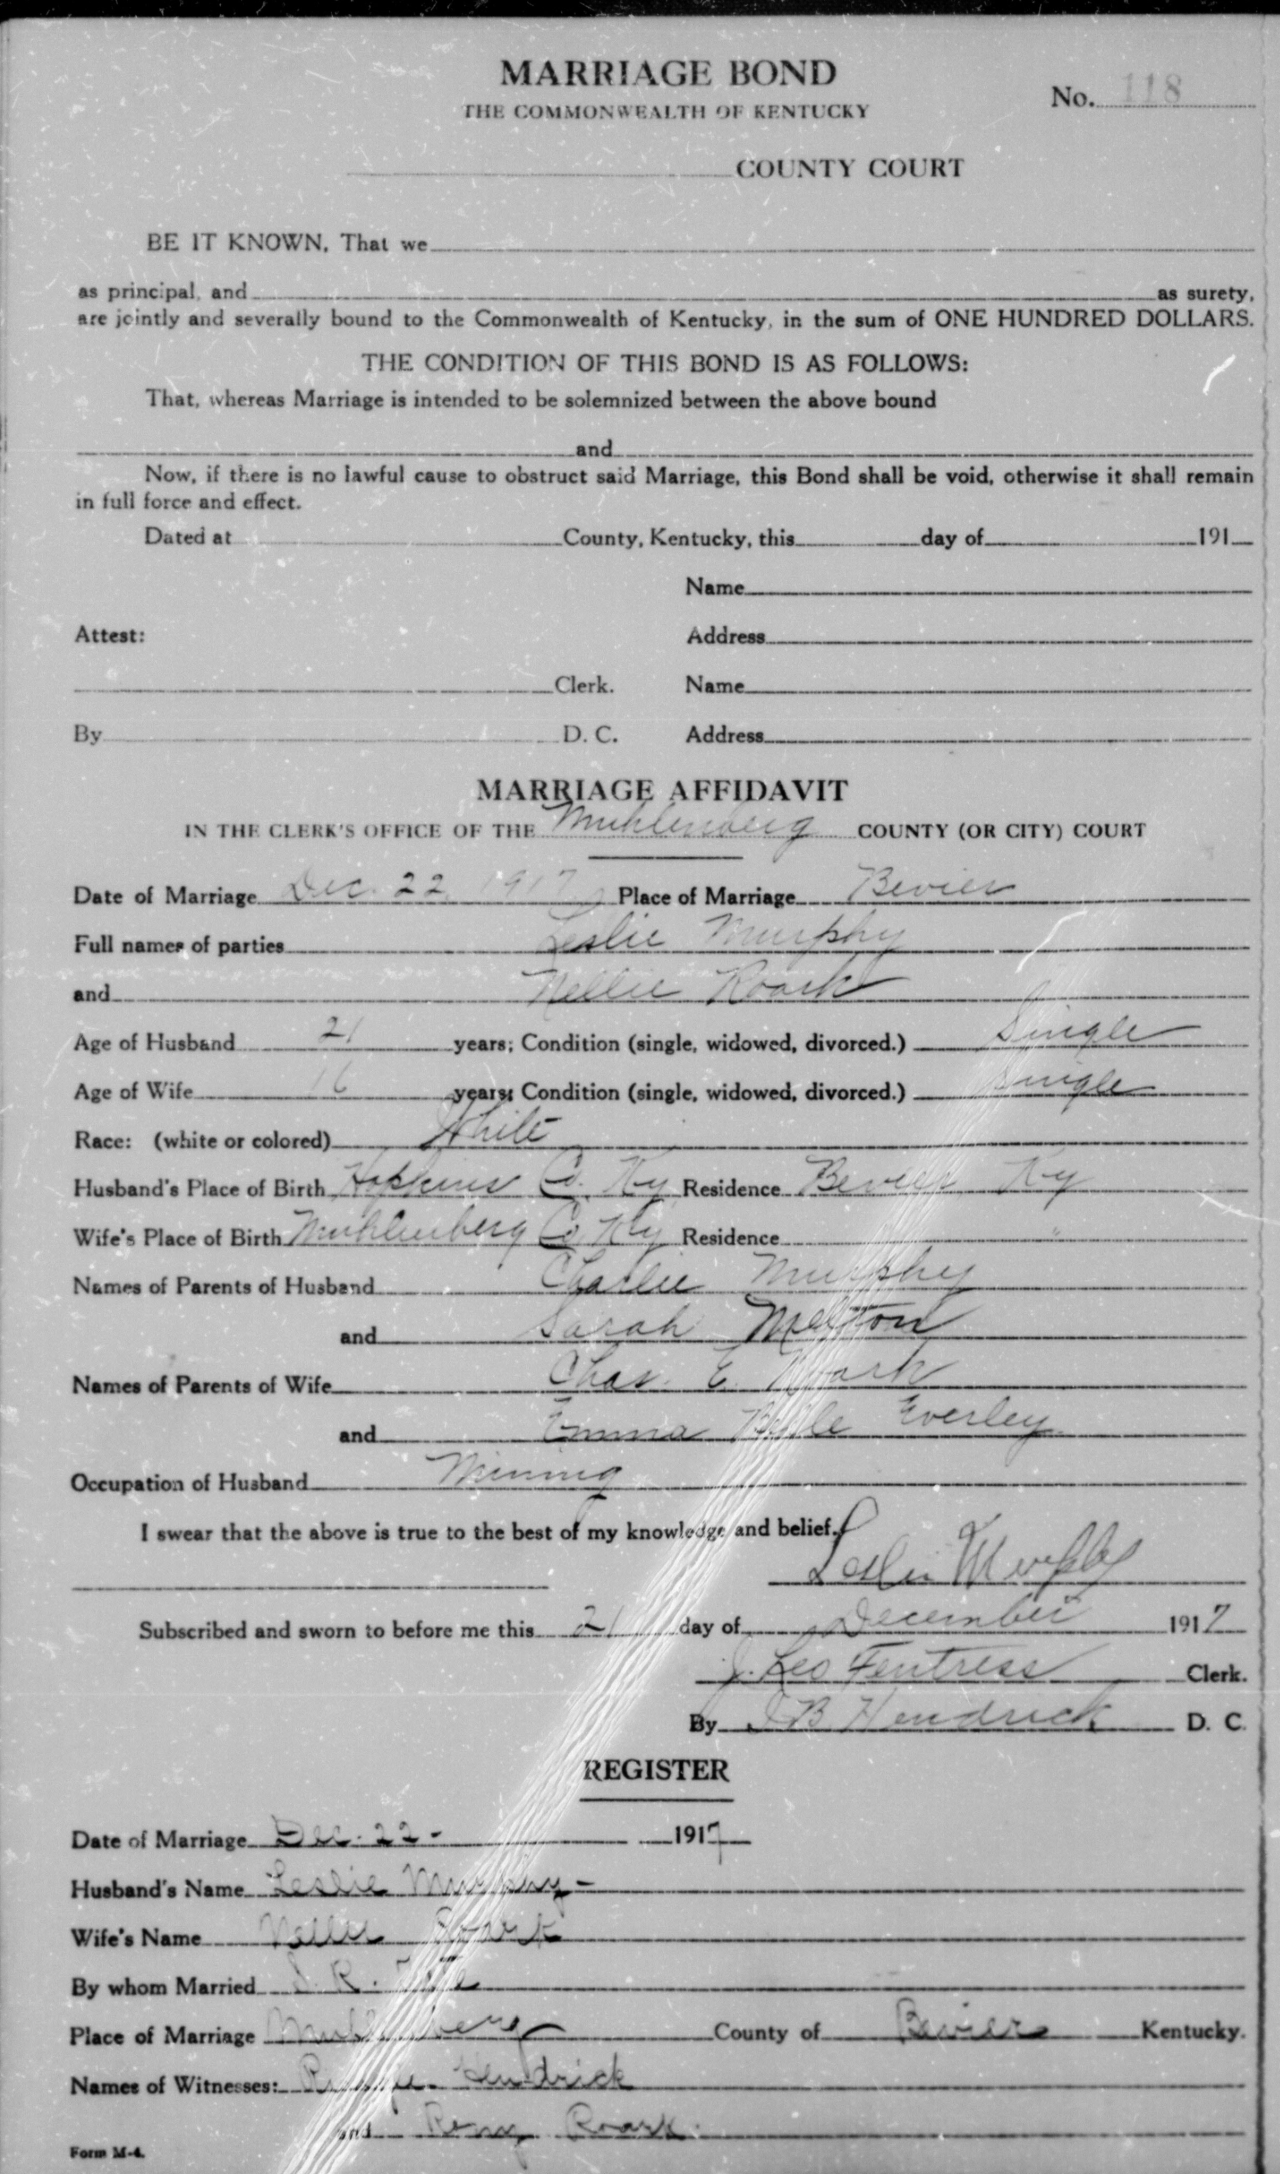 MARRIAGE BOND
THE COMMONWEALTH OF KENTUCKY
No. 118
COUNTY COURT
BE IT KNOWN, That we
as principal, and as surety,
are jointly and severally bound to the Commonwealth of Kentucky, in the sum of ONE HUNDRED DOLLARS.
THE CONDITION OF THIS BOND IS AS FOLLOWS:
That, whereas Marriage is intended to be solemnized between the above bound
and
Now, if there is no lawful cause to obstruct said Marriage, this Bond shall be void, otherwise it shall remain
in full force and effect.
Dated at County, Kentucky, this day of 191
Name
Attest: Address
Clerk. Name
By D. C. Address
MARRIAGE AFFIDAVIT
IN THE CLERK'S OFFICE OF THE Muhlenberg COUNTY (OR CITY) COURT
Date of Marriage Dec. 22, 1917 Place of Marriage Bevier
Full names of parties Leslie Murphy
and Nellie Roark
Age of Husband 21 years; Condition (single, widowed, divorced.) Single
Age of Wife 16 years; Condition (single, widowed, divorced.) Single
Race: (white or colored) White
Husband's Place of Birth Hopkins Co. Ky Residence Bevier Ky
Wife's Place of Birth Muhlenberg Co Ky Residence "
Names of Parents of Husband Charlie Murphy
and Sarah Melton
Names of Parents of Wife Chas. E. Roark
and Emma Belle Everley
Occupation of Husband Mining
I swear that the above is true to the best of my knowledge and belief.
Leslie Murphy
Subscribed and sworn to before me this 21 day of December 1917
J. Leo Fentress Clerk.
By J B Hendrick D. C.
REGISTER
Date of Marriage Dec. 22 - 1917
Husband's Name Leslie Murphy -
Wife's Name Nellie Roark
By whom Married R.
Place of Marriage Muhlenberg County of Bevier Kentucky.
Names of Witnesses: Hendrick
and Roark.
Form M-4.